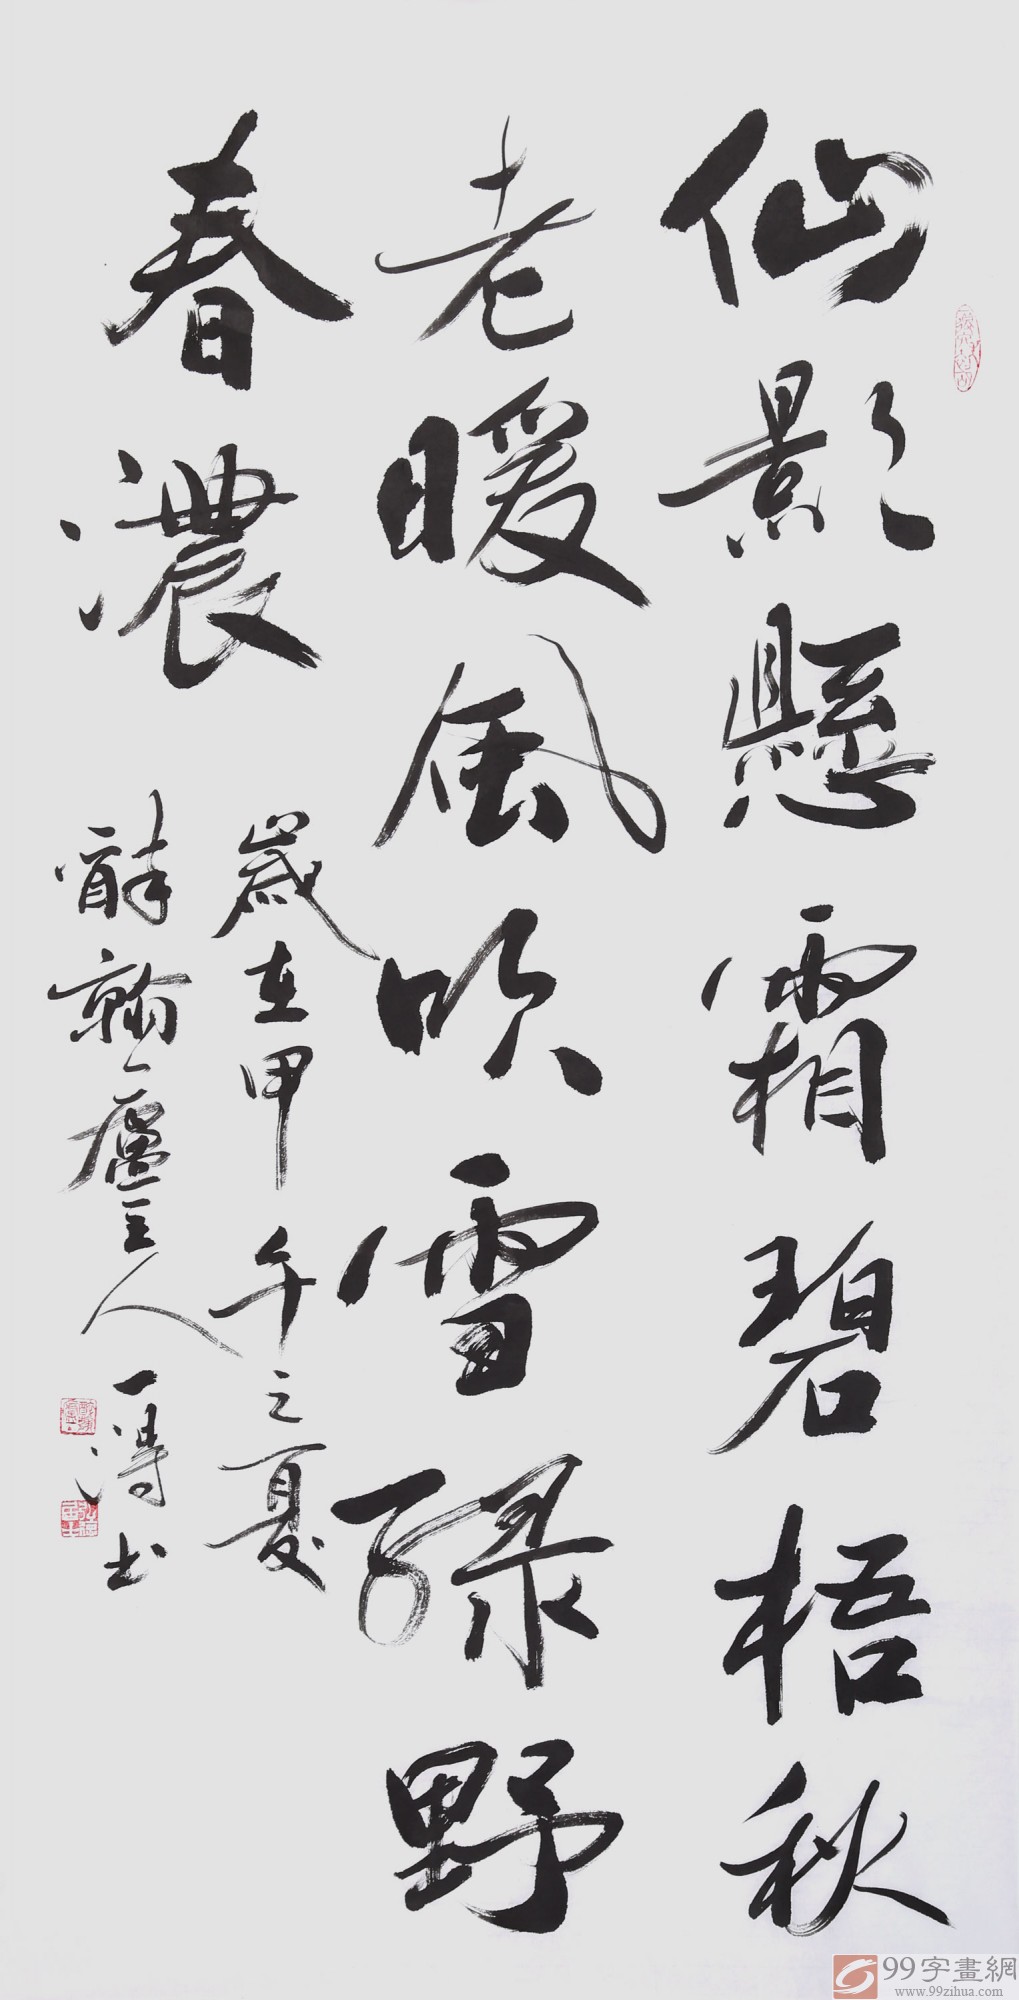 仙影懸霜碧梧秋
老暖風吹雪綠野
春濃
歲在甲午之夏
翰廬主人一得书
99字畫網
www.99zihua.com